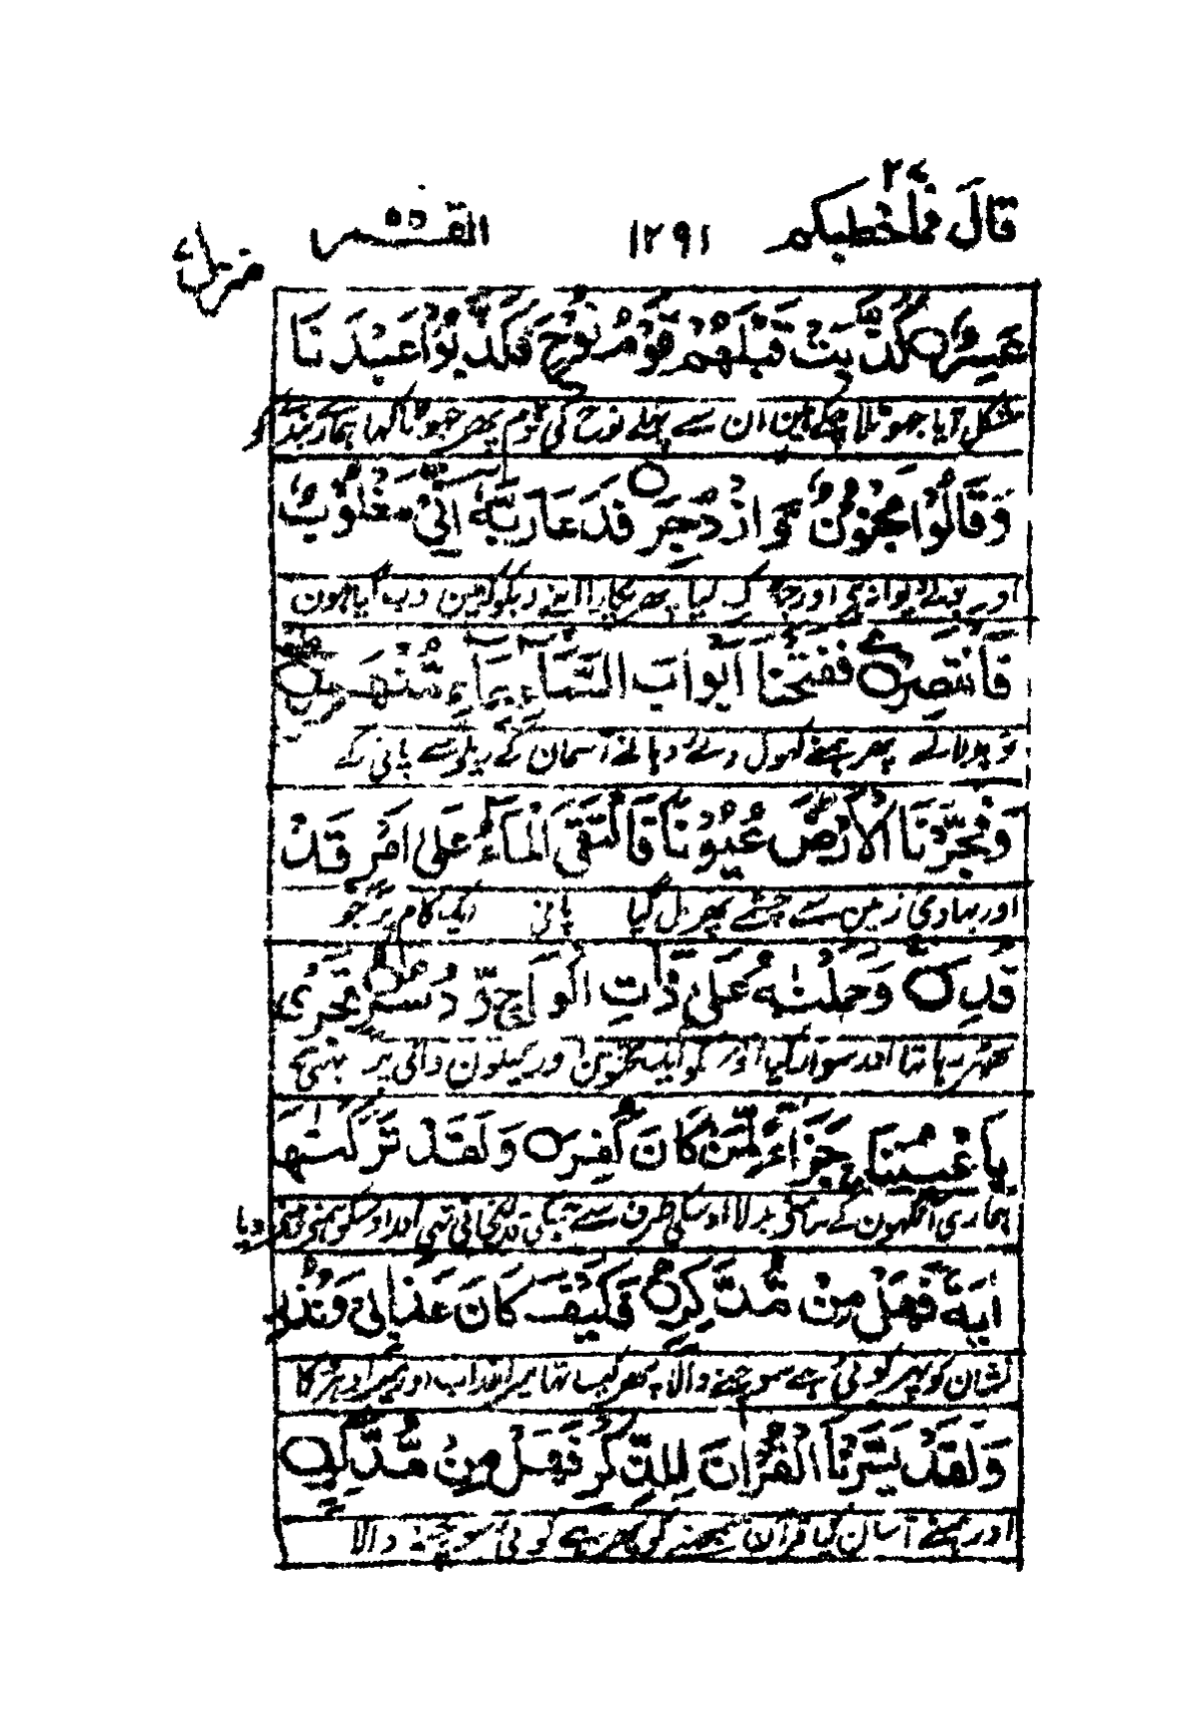 قَالَ فَمَا خَطْبُكُمْ ٢٧
١٢٩١
القمر ٥٤
منزل ٧
عَسِرٌ ○ كَذَّبَتْ قَبْلَهُمْ قَوْمُ نُوْحٍ فَكَذَّبُوْا عَبْدَنَا
مشکل آیا جھوٹلا چکے ہین ان سے پہلے نوح کی قوم پھر جھوٹا کہا ہمارے بندے کو
وَقَالُوْا مَجْنُوْنٌ وَّازْدُجِرَ ○ فَدَعَا رَبَّهٗۤ اَنِّيْ مَغْلُوْبٌ
اور بولے دیوانہ ہی اور لیا پھر پکارا اپنے رب کو کہ مین دب گیا ہون
فَانْتَصِرْ ○ فَفَتَحْنَاۤ اَبْوَابَ السَّمَآءِ بِمَآءٍ مُّنْهَمِرٍ ○
تو بدلا لے پھر ہمنے کھول دیے دہانے آسمان کے ریلے سے پانی کے
وَّفَجَّرْنَا الْاَرْضَ عُيُوْنًا فَالْتَقَى الْمَآءُ عَلٰۤى اَمْرٍ قَدْ
اور بہادی زمین سے چشمے پھر مل گیا پانی ایک کام پر جو
قُدِرَ ○ وَحَمَلْنٰهُ عَلٰى ذَاتِ اَلْوَاحٍ وَّدُسُرٍ ○ تَجْرِيْ
ٹھہر رہا تھا اور سوار کیا اوسکو ایک تختون اور کیلون والی پر بہتی
بِاَعْيُنِنَا جَزَآءً لِّمَنْ كَانَ كُفِرَ ○ وَلَقَدْ تَّرَكْنٰهَاۤ
ہماری آنکھون کے سامنے بدلا اوسکی طرف سے جسکی قدر نجانی تہی اور اوسکو ہمنے رہنے دیا
اٰيَةً فَهَلْ مِنْ مُّدَّكِرٍ ○ فَكَيْفَ كَانَ عَذَابِيْ وَنُذُرِ
نشان کو پھر کوئی ہے سوچنے والا پھر کیسا تھا میرا عذاب اور میرا ڈر کا
وَلَقَدْ يَسَّرْنَا الْقُرْاٰنَ لِلذِّكْرِ فَهَلْ مِنْ مُّدَّكِرٍ ○
اور ہمنے آسان کیا قرآن سمجھنے کو پھر ہے کوئی سوچنے والا